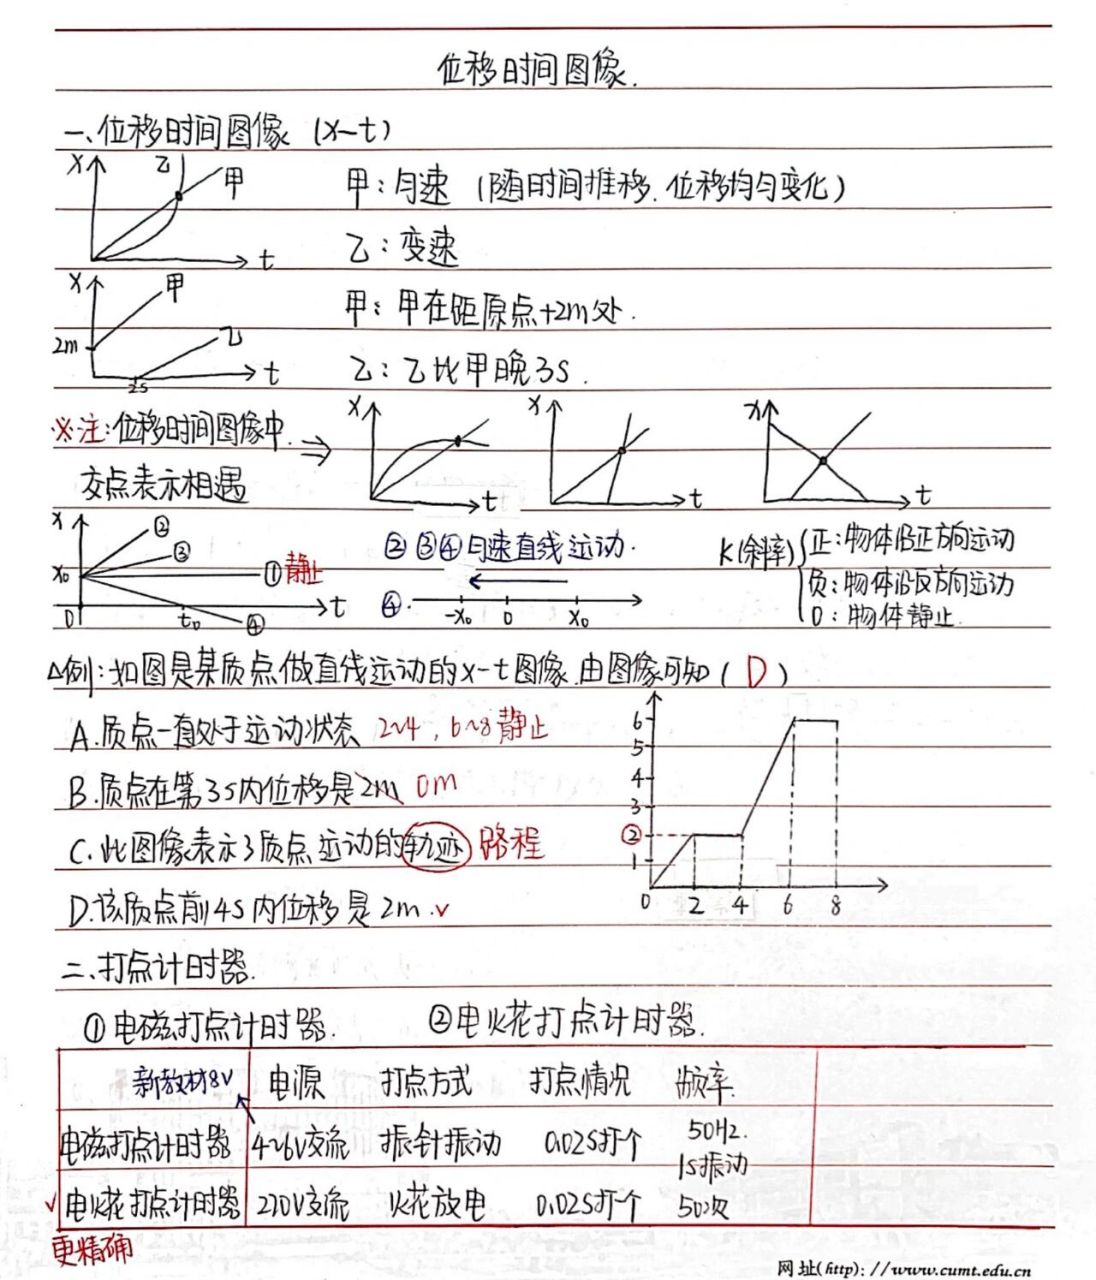 位移时间图像.
一、位移时间图像 (x-t)
x 乙 甲 t
甲:匀速 (随时间推移.位移均匀变化)
乙:变速
x 甲 2m 乙 3s t
甲:甲在距原点+2m处.
乙:乙比甲晚3s.
※注:位移时间图像中.
交点表示相遇
x t x t x t
x ② ③ ①静止 x₀ 0 t₀ ④ t
②③④匀速直线运动.
④. -x₀ 0 x₀
K(斜率) 正:物体沿正方向运动
负:物体沿反方向运动
0:物体静止.
△例:如图是某质点做直线运动的x-t图像.由图像可知(D)
A.质点一直处于运动状态 2~4,6~8静止
B.质点在第3s内位移是2m 0m
C.此图像表示了质点运动的轨迹 路程
D.该质点前4s内位移是2m.√
6
5
4
3
②
1
0 2 4 6 8
二、打点计时器.
①电磁打点计时器. ②电火花打点计时器.
新教材8V 电源 打点方式 打点情况 频率.
电磁打点计时器 4~6V交流 振针振动 0.02s打个 50Hz.
1s振动
√电火花打点计时器 220V交流 火花放电 0.02s打个 50次
更精确
网址(http)://www.cumt.edu.cn